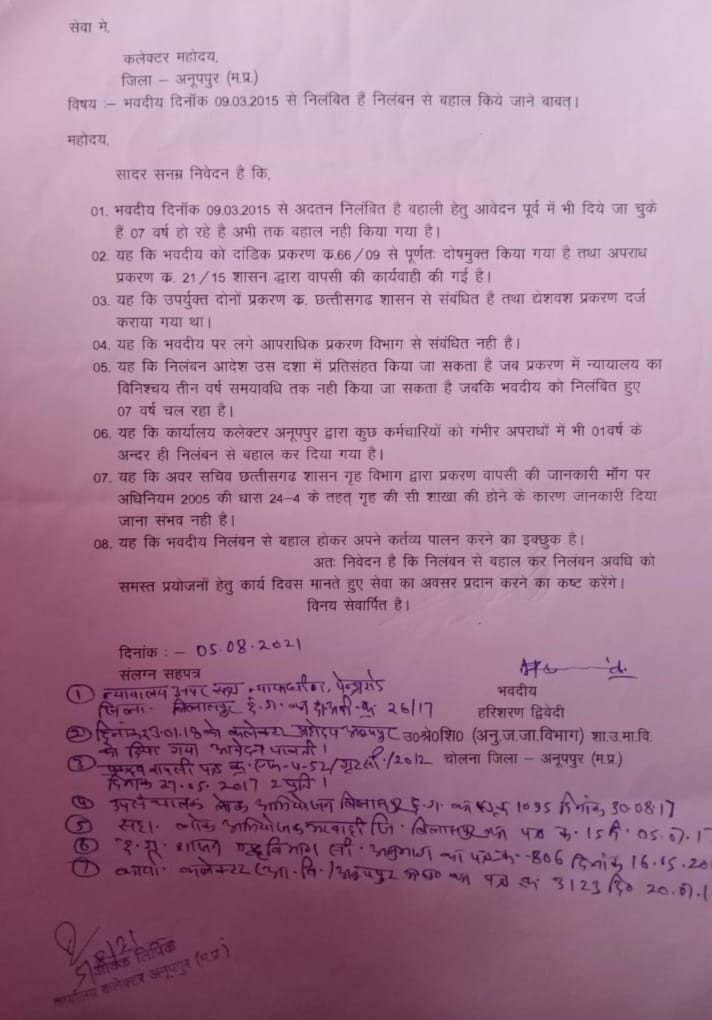 सेवा मे,
कलेक्टर महोदय,
जिला – अनूपपुर (म.प्र.)
विषय :– भवदीय दिनॉक 09.03.2015 से निलंबित हैं निलंबन से बहाल किये जाने बाबत्।
महोदय,
सादर सनम्र निवेदन है कि,
01. भवदीय दिनॉक 09.03.2015 से अदतन निलंबित है बहाली हेतु आवेदन पूर्व में भी दिये जा चुके
हैं 07 वर्ष हो रहे है अभी तक बहाल नही किया गया है।
02. यह कि भवदीय को दांडिक प्रकरण क्र.66/09 से पूर्णतः दोषमुक्त किया गया है तथा अपराध
प्रकरण क्र. 21/15 शासन द्वारा वापसी की कार्यवाही की गई है।
03. यह कि उपर्युक्त दोनों प्रकरण क्र. छत्तीसगढ शासन से संबंधित है तथा द्येशवश प्रकरण दर्ज
कराया गया था।
04. यह कि भवदीय पर लगे आपराधिक प्रकरण विभाग से संबंधित नही है।
05. यह कि निलंबन आदेश उस दशा में प्रतिसंहत किया जा सकता है जब प्रकरण में न्यायालय का
विनिश्चय तीन वर्ष समयावधि तक नही किया जा सकता है जबकि भवदीय को निलंबित हुए
07 वर्ष चल रहा है।
06. यह कि कार्यालय कलेक्टर अनूपपुर द्वारा कुछ कर्मचारियों को गंभीर अपराधों में भी 01वर्ष के
अन्दर ही निलंबन से बहाल कर दिया गया है।
07. यह कि अवर सचिव छत्तीसगढ शासन गृह विभाग द्वारा प्रकरण वापसी की जानकारी मॉग पर
अधिनियम 2005 की धारा 24-4 के तहत् गृह की सी शाखा की होने के कारण जानकारी दिया
जाना संभव नही है।
08. यह कि भवदीय निलंबन से बहाल होकर अपने कर्तव्य पालन करने का इक्छुक है।
अतः निवेदन है कि निलंबन से बहाल कर निलंबन अवधि को
समस्त प्रयोजनों हेतु कार्य दिवस मानते हुए सेवा का अवसर प्रदान करने का कष्ट करेंगे।
विनय सेवार्पित है।
दिनांक : – 05.08.2021
संलग्न सहपत्र
भवदीय
① न्यायालय अपर सत्र न्यायाधीश, पेन्ड्रारोड
जिला- बिलासपुर छ.ग. का 26/17
हरिशरण द्विवेदी
② दिनांक 23.01.18 को कलेक्टर महोदय अनूपपुर
उ०श्रे०शि० (अनु.ज.जा.विभाग) शा.उ.मा.वि.
को दिया गया आवेदन पावती।
चोलना जिला – अनूपपुर (म.प्र.)
③ प्रकरण वापसी पत्र क्र. /2012
दिनांक 27.05.2017 2 प्रति।
④ उपसंचालक लोक अभियोजन बिलासपुर छ.ग. का पत्र क्र 1095 दिनांक 30.08.17
⑤ सहा. लोक अभियोजक मरवाही जि. बिलासपुर का पत्र क्र. 15 दि. 05.07.1
⑥ छ.ग. शासन गृह विभाग सी. अनुभाग का पत्र क्र. 806 दिनांक 16.05.20
⑦ कार्या. कलेक्टर (आ.वि.) अनूपपुर का पत्र क्र 3123 दि० 20.07.1
आवक लिपिक
कार्यालय कलेक्टर अनूपपुर (म.प्र.)